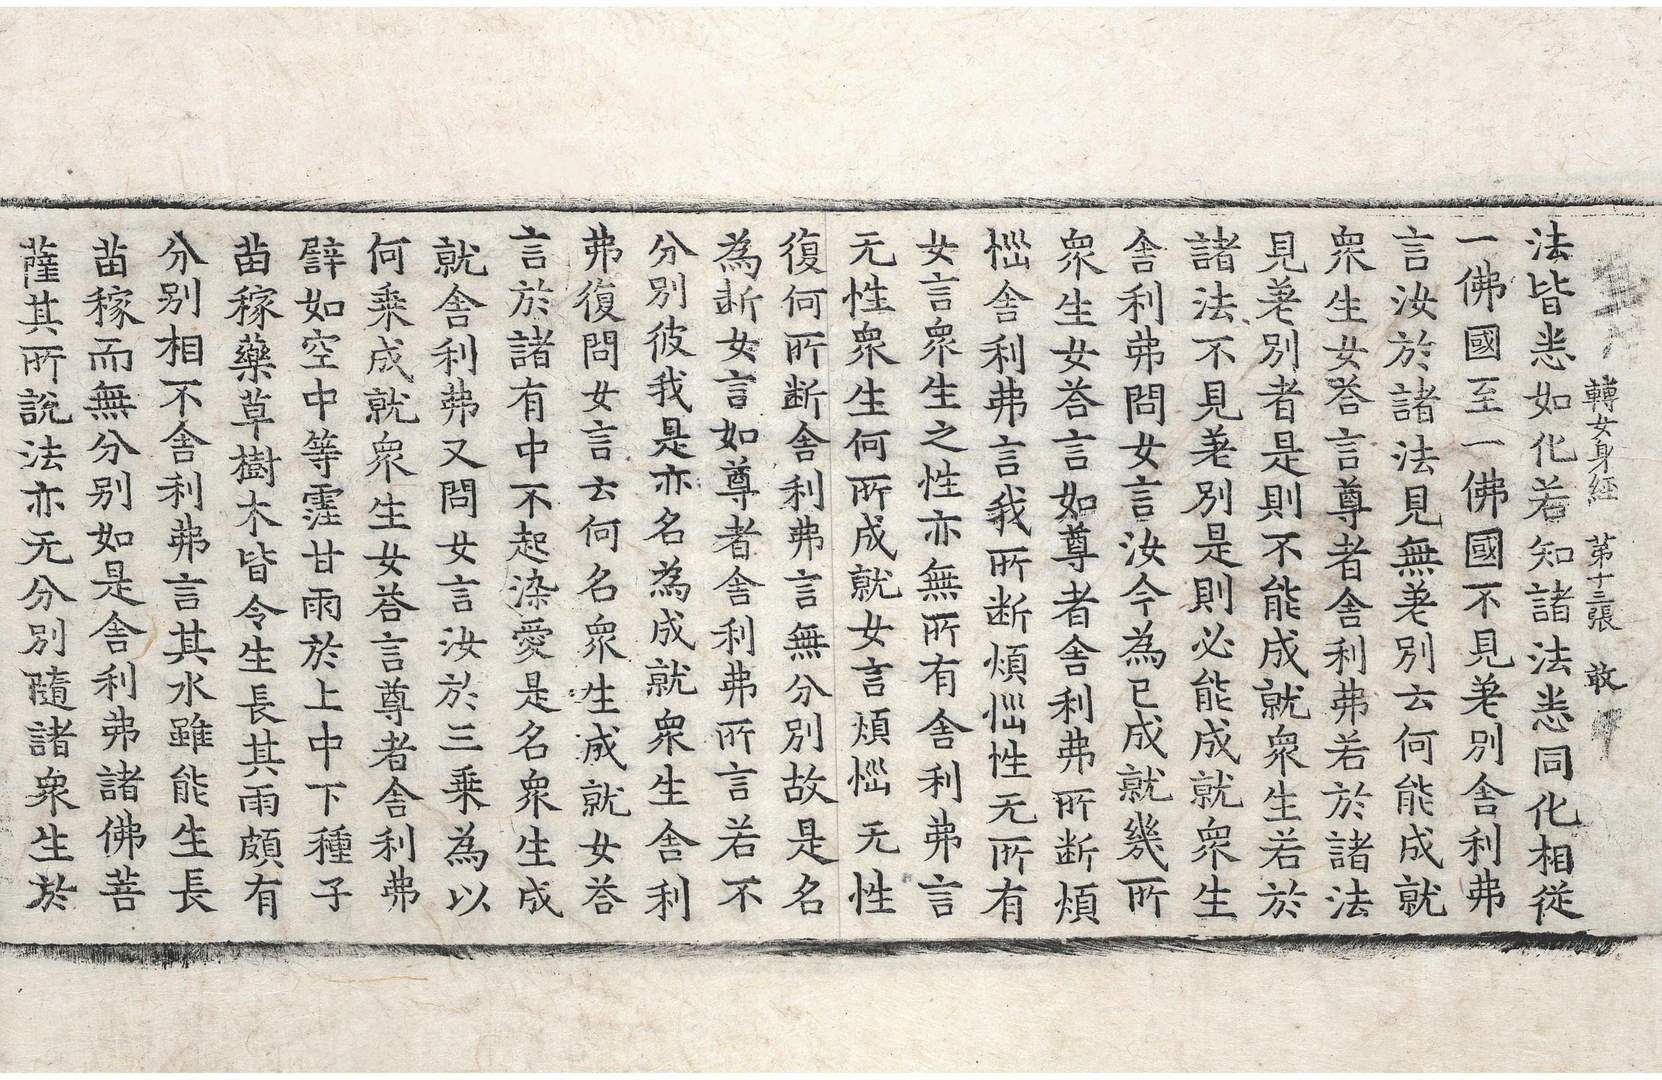 轉女身経　第十三張　敢
法皆悉如化若知諸法悉同化相從
一佛國至一佛國不見差別舍利弗
言汝於諸法見無差別云何能成就
衆生女荅言尊者舍利弗若於諸法
見差別者是則不能成就衆生若於
諸法不見差別是則必能成就衆生
舍利弗問女言汝今為已成就幾所
衆生女荅言如尊者舍利弗所断煩
惱舍利弗言我所断煩惱性无所有
女言衆生之性亦無所有舍利弗言
无性衆生何所成就女言煩惱无性
復何所断舍利弗言無分別故是名
為断女言如尊者舍利弗所言若不
分別彼我是亦名為成就衆生舍利
弗復問女言云何名衆生成就女荅
言於諸有中不起染愛是名衆生成
就舍利弗又問女言汝於三乗為以
何乗成就衆生女荅言尊者舍利弗
譬如空中等霔甘雨於上中下種子
苗稼藥草樹木皆令生長其雨頗有
分別相不舍利弗言其水雖能生長
苗稼而無分別如是舍利弗諸佛菩
薩其所說法亦无分別隨諸衆生於